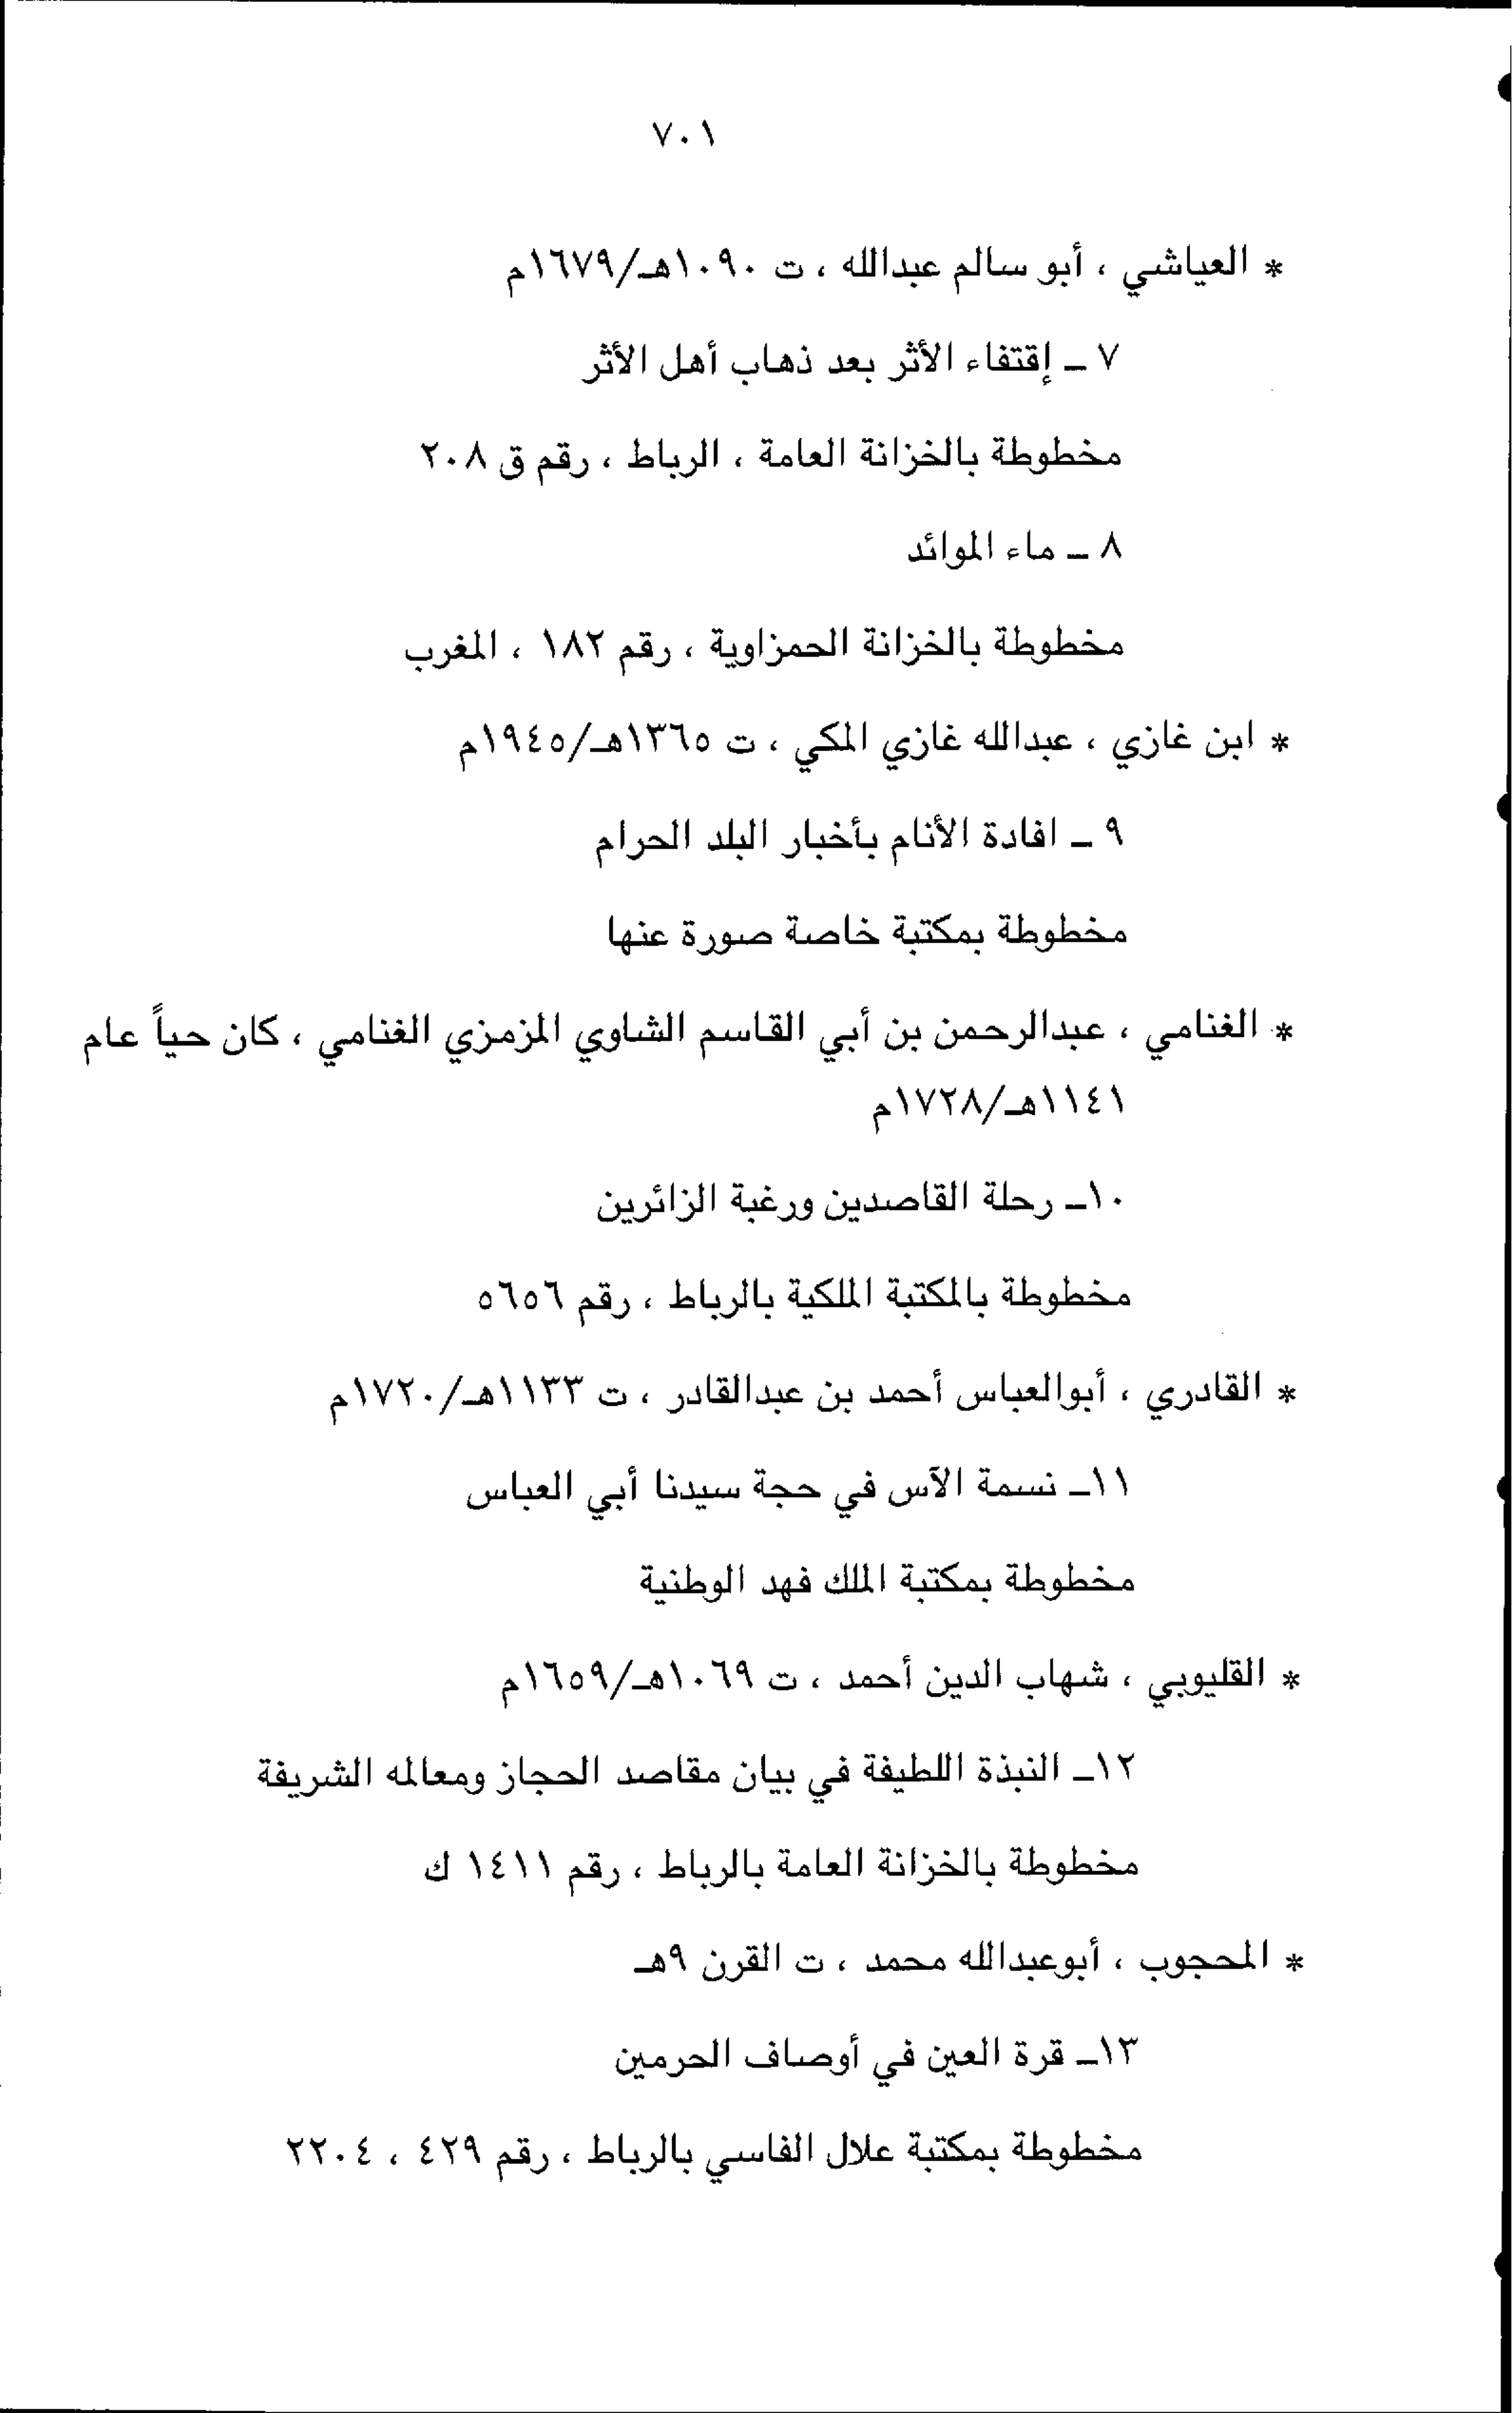 ٧٠١
* العياشي ، أبو سالم عبدالله ، ت ١٠٩٠هـ/١٦٧٩م
٧ ـ إقتفاء الأثر بعد ذهاب أهل الأثر
مخطوطة بالخزانة العامة ، الرباط ، رقم ق ٢٠٨
٨ ـ ماء الموائد
مخطوطة بالخزانة الحمزاوية ، رقم ١٨٢ ، المغرب
* ابن غازي ، عبدالله غازي المكي ، ت ١٣٦٥هـ/١٩٤٥م
٩ ـ افادة الأنام بأخبار البلد الحرام
مخطوطة بمكتبة خاصة صورة عنها
* الغنامي ، عبدالرحمن بن أبي القاسم الشاوي المزمزي الغنامي ، كان حياً عام
١١٤١هـ/١٧٢٨م
١٠ـ رحلة القاصدين ورغبة الزائرين
مخطوطة بالمكتبة الملكية بالرباط ، رقم ٥٦٥٦
* القادري ، أبوالعباس أحمد بن عبدالقادر ، ت ١١٣٣هـ/١٧٢٠م
١١ـ نسمة الآس في حجة سيدنا أبي العباس
مخطوطة بمكتبة الملك فهد الوطنية
* القليوبي ، شهاب الدين أحمد ، ت ١٠٦٩هـ/١٦٥٩م
١٢ـ النبذة اللطيفة في بيان مقاصد الحجاز ومعالمه الشريفة
مخطوطة بالخزانة العامة بالرباط ، رقم ١٤١١ ك
* المحجوب ، أبوعبدالله محمد ، ت القرن ٩هـ
١٣ـ قرة العين في أوصاف الحرمين
مخطوطة بمكتبة علال الفاسي بالرباط ، رقم ٤٢٩ ، ٢٢٠٤